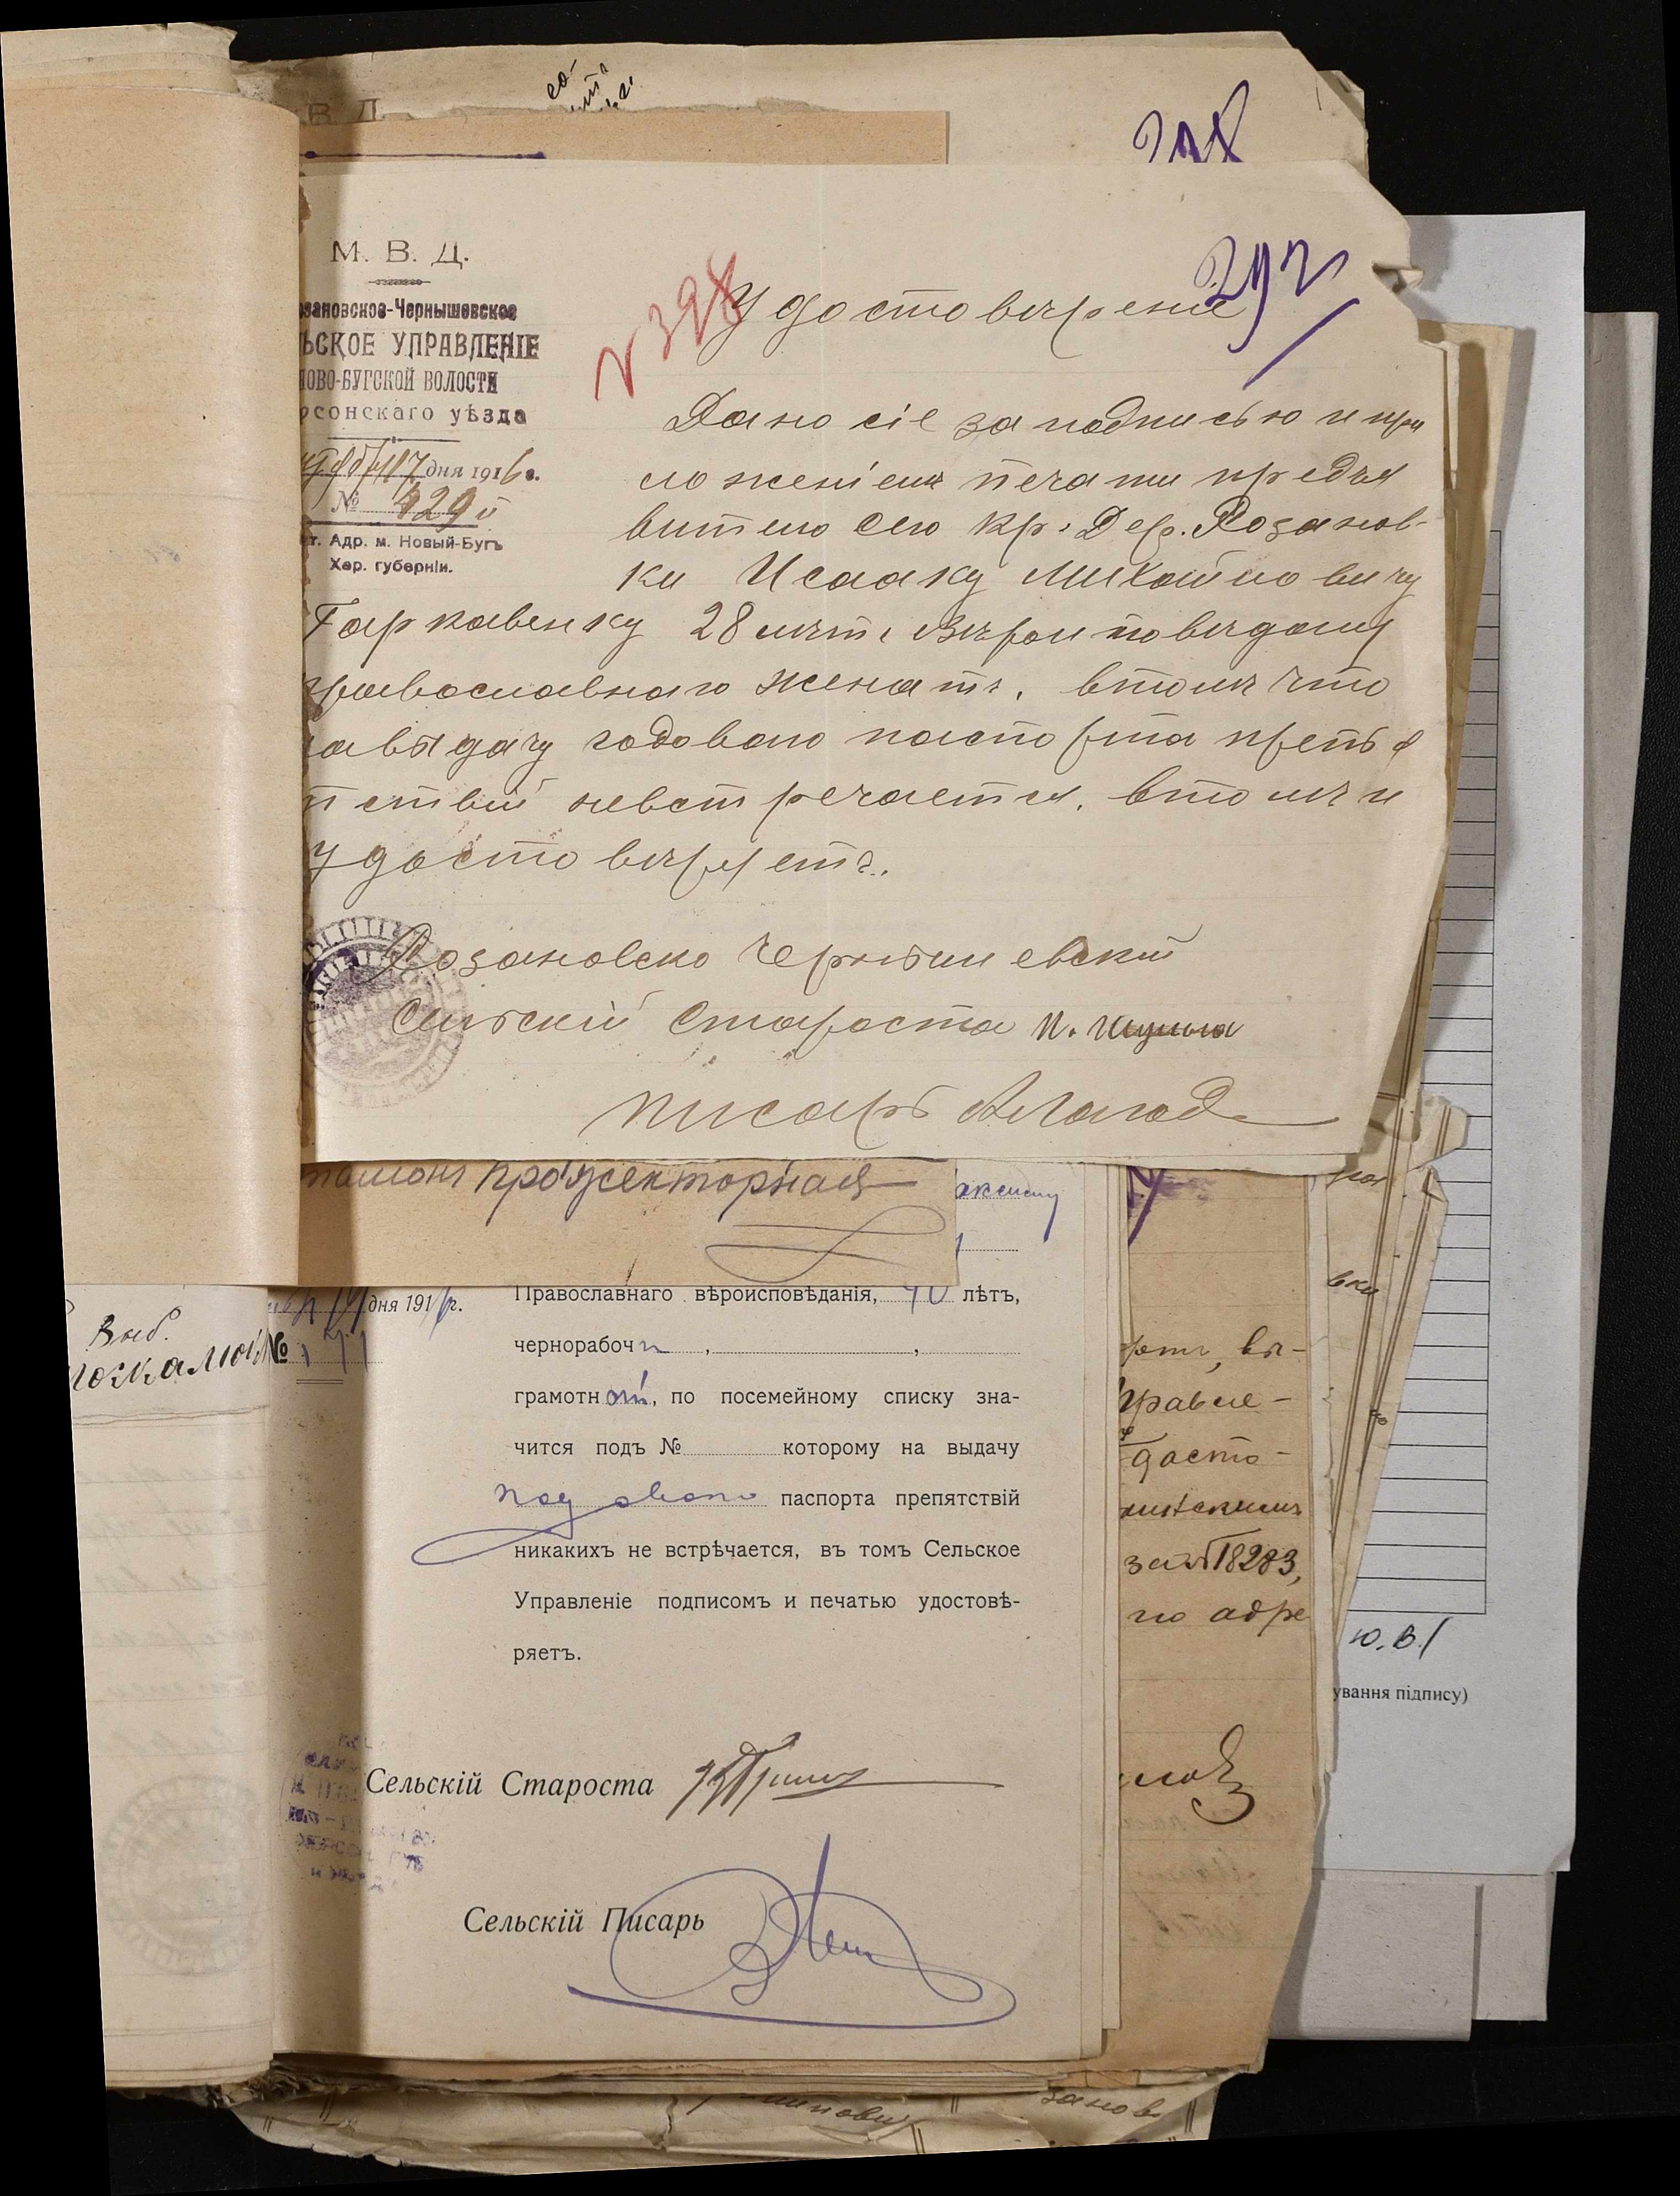 В Д
М. В. Д.
зановское-Чернышевское
ЬСКОЕ УПРАВЛЕНІЕ
НОВО-БУГСКОЙ ВОЛОСТИ
рсонскаго уѣзда
17 дня 1916 г.
№
т. Адр. м. Новый-Бугъ
Хер. губерніи.
№ 328
Удостовѣреніе
Дано сіе за подписью и при
ложеніемъ печати предъя
вителю сего Кр. Дер. Розанов-
ки Исааку Михайловичу
Гаркавенку 28 лѣтъ Вѣроисповѣдому
православнаго женатъ. втомъ что
навыдачу годоваго паспорта препя
пствий невстречается. втомъ и
удостовѣряетъ.
Розановско Чернышевский
Сельскій Староста И.
писарь
прожекторная
аксиму
дня 191 г.
Православнаго вѣроисповѣданія, 40 лѣтъ,
Выб.
№
чернорабоч
грамотн , по посемейному списку зна-
чится подъ № которому на выдачу
паспорта препятствій
никакихъ не встрѣчается, въ томъ Сельское
Управленіе подписомъ и печатью удостовѣ-
ряетъ.
Сельскій Староста
Сельскій Писарь
вы-
правле-
досто-
за № 18283,
по адре
вки
Ю.В./
ування підпису)
занов